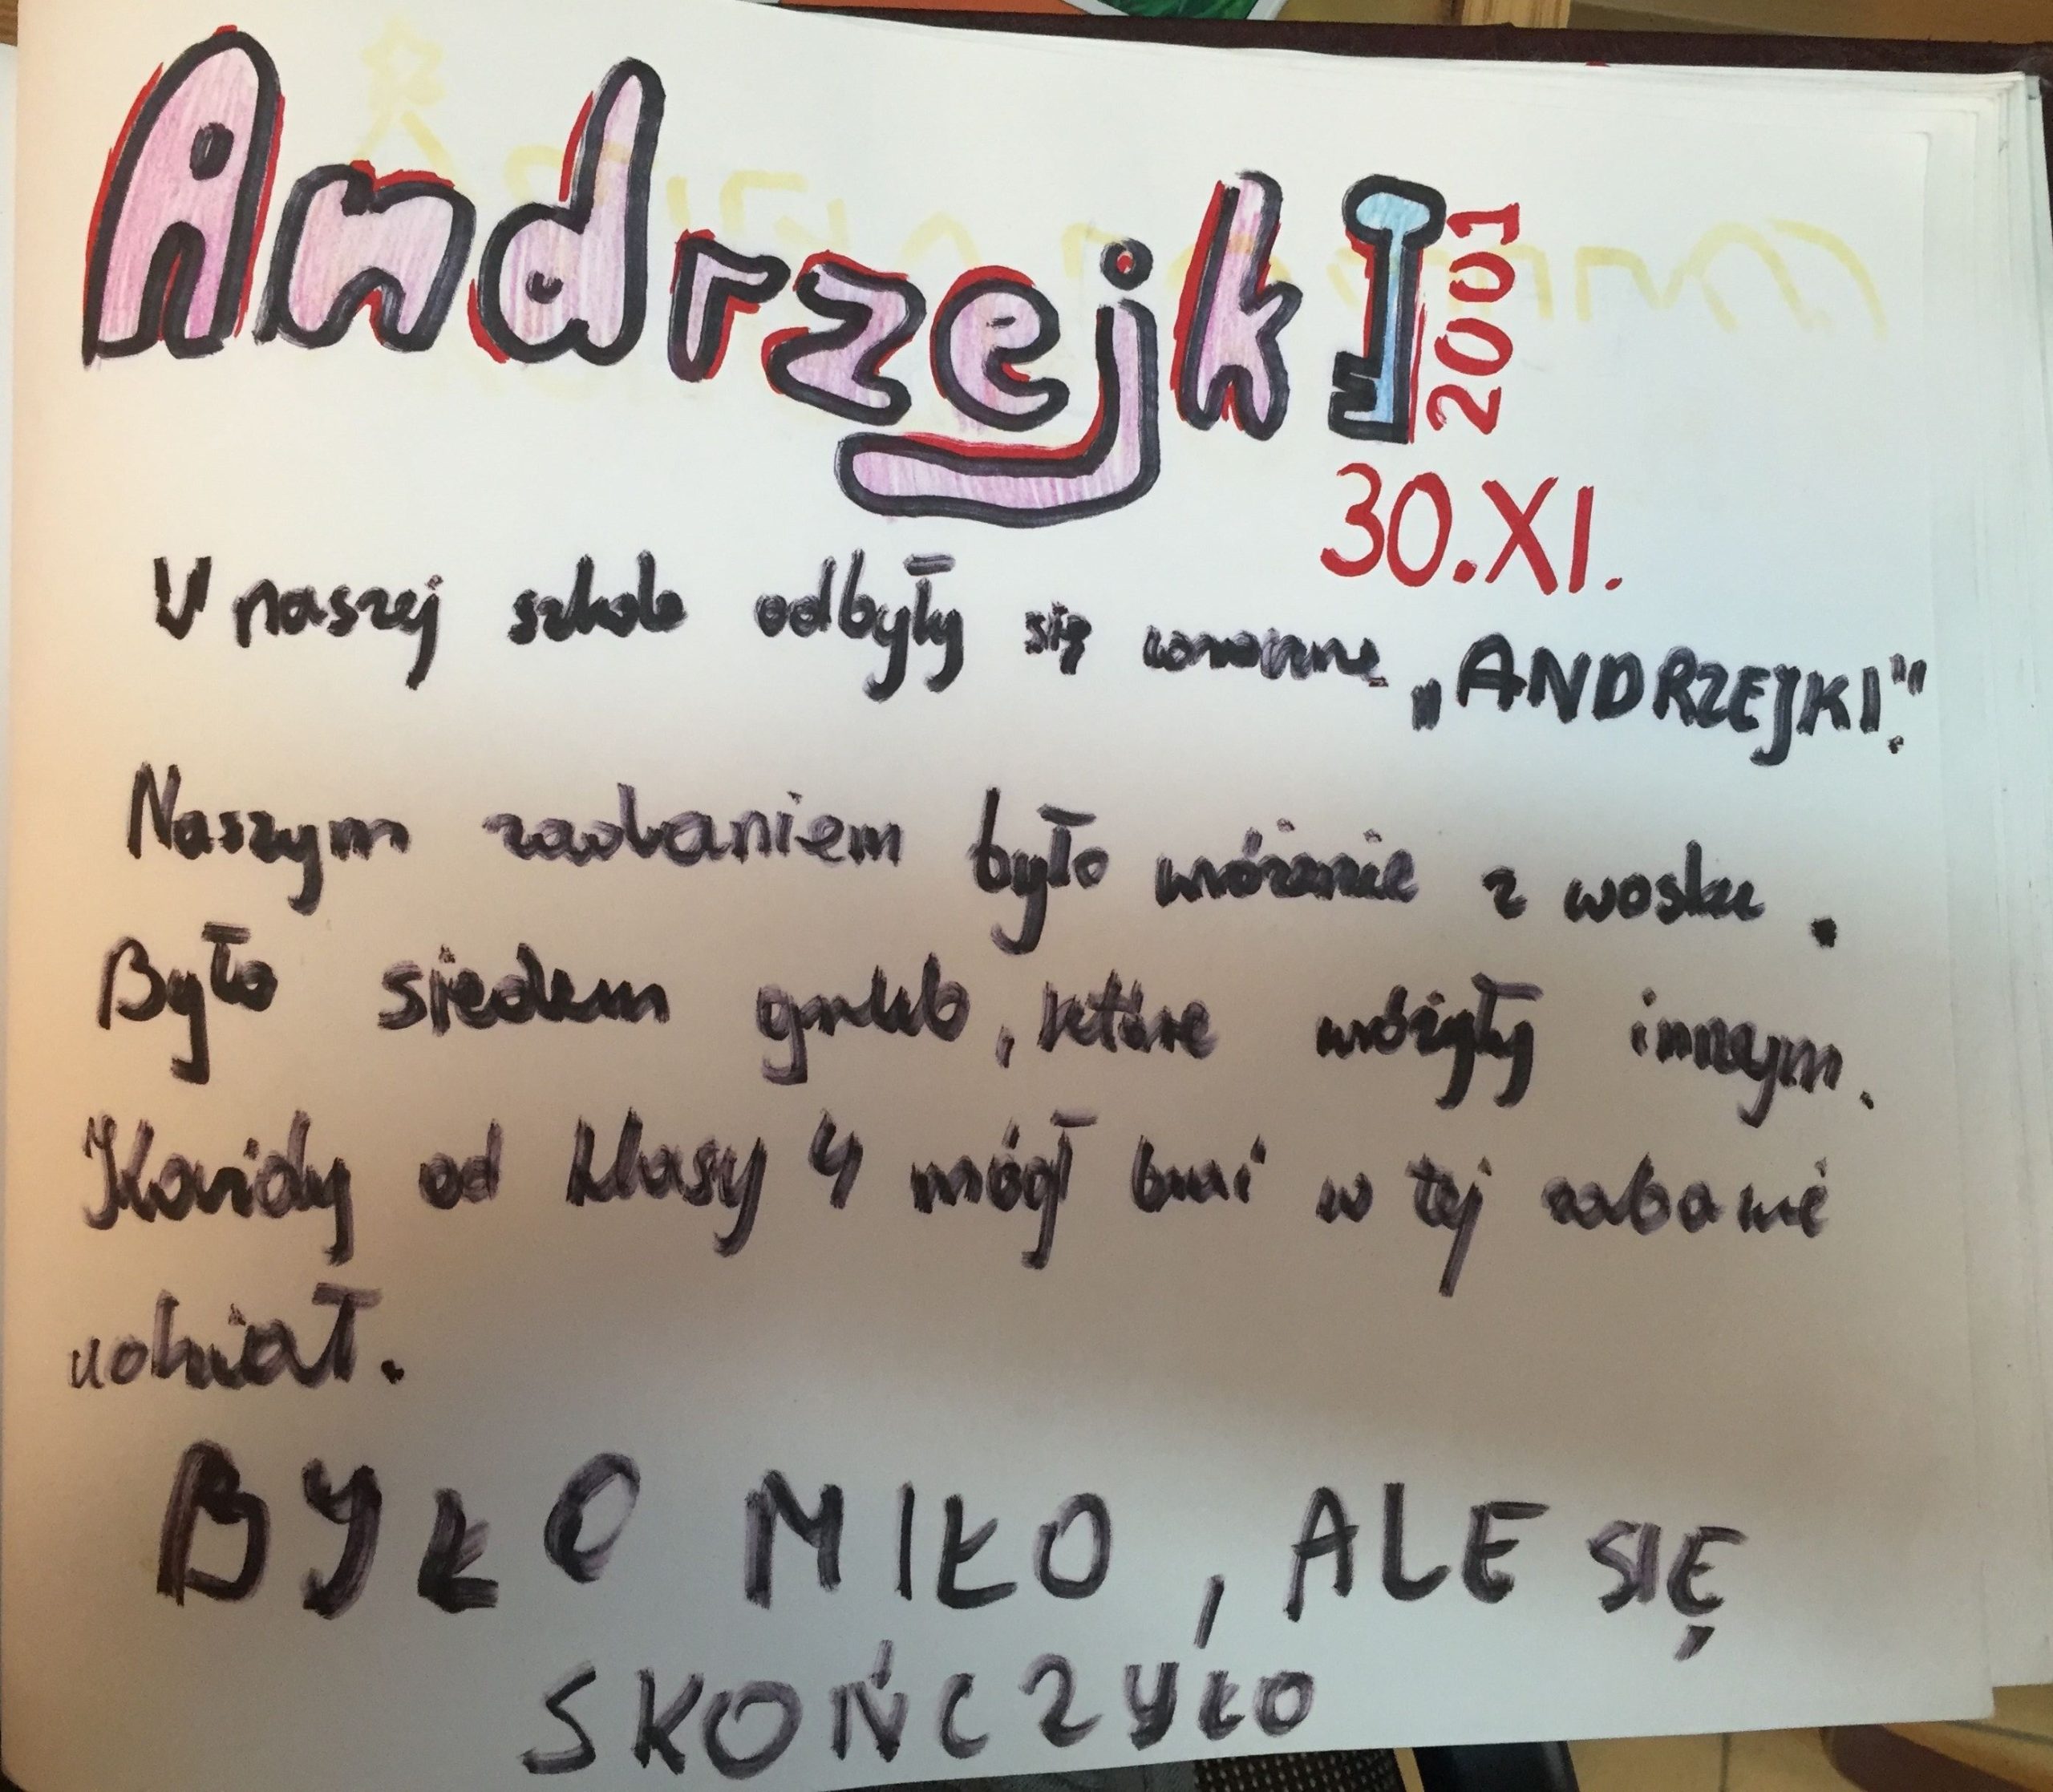 Andrzejki 2001
30.XI.
W naszej szkole odbyły się "ANDRZEJKI".
Naszym zadaniem było wróżenie z wosku.
Było siedem grup, które wróżyły innym.
Każdy od klasy 4 mógł brać w tej zabawie
udział.
BYŁO MIŁO, ALE SIĘ
SKOŃCZYŁO